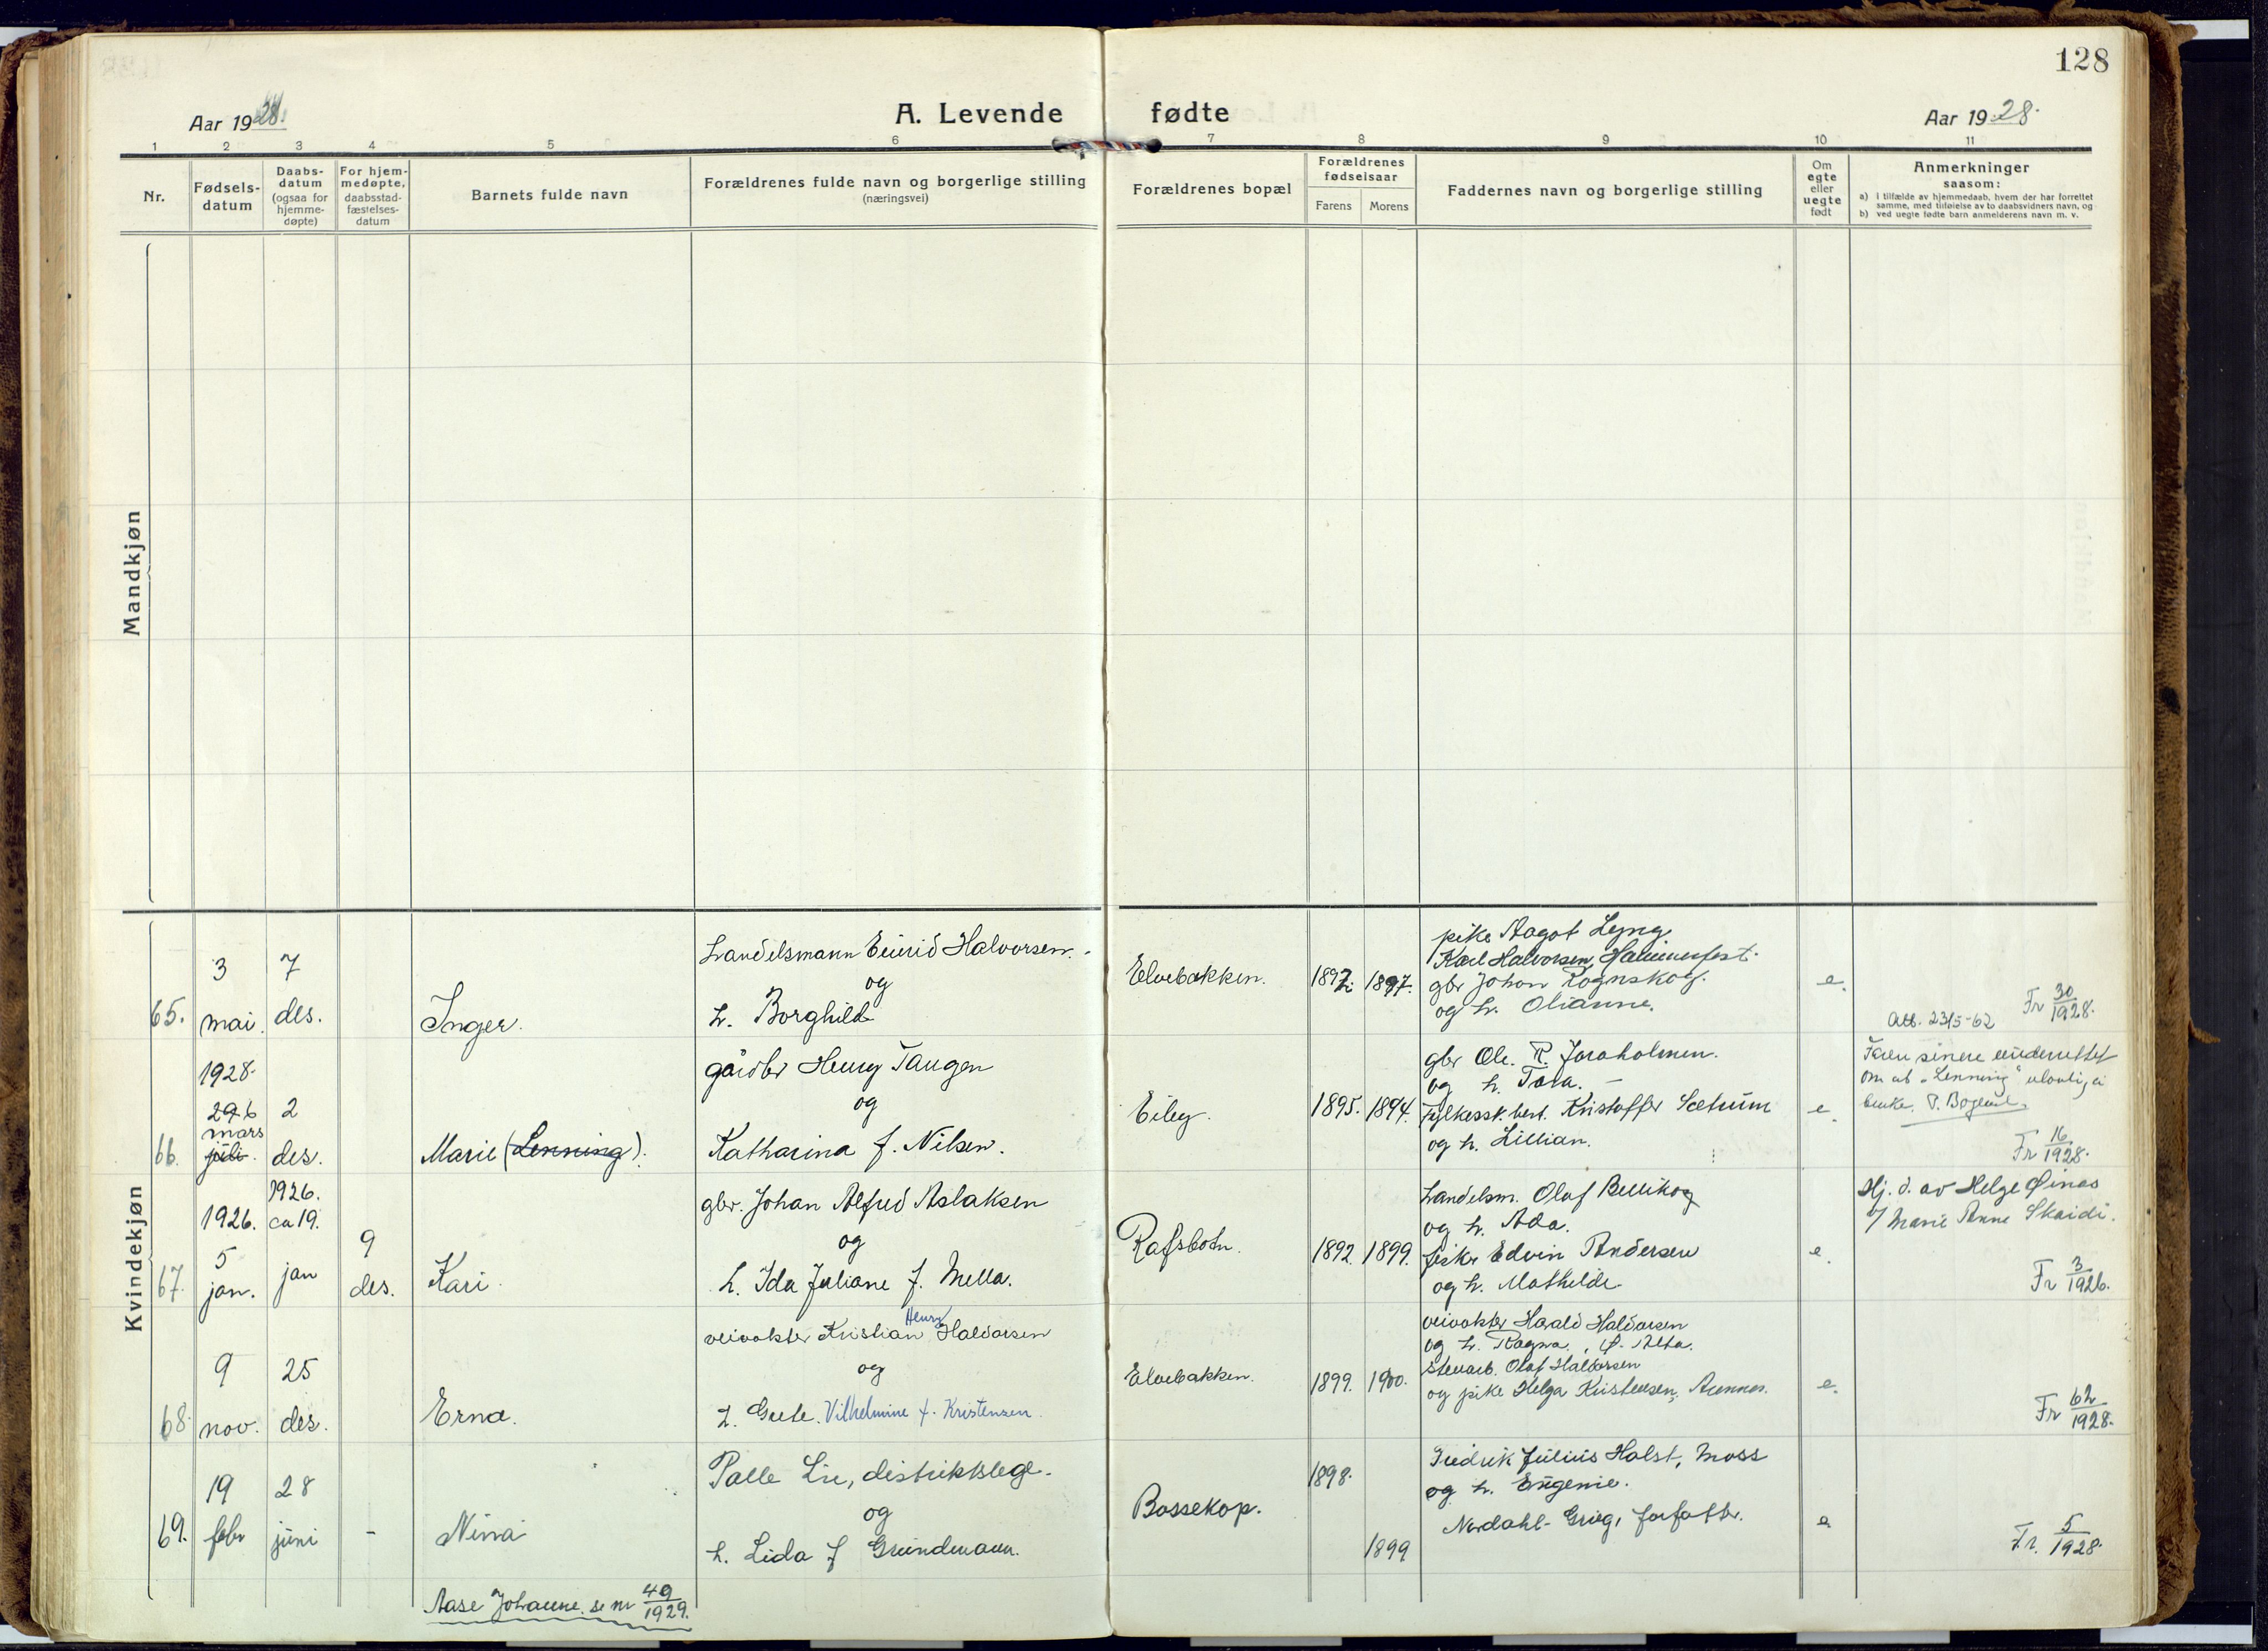 128
Aar 1928.
A. Levende fødte
Aar 1928.
1 2 3 4 5 6 7 8 9 10 11
Nr.
Fødsels-
datum
Daabs-
datum
(ogsaa for
hjemme-
døpte)
For hjem-
medøpte,
daabsstad-
fæstelses-
datum
Barnets fulde navn
Forældrenes fulde navn og borgerlige stilling
(næringsvei)
Forældrenes bopæl
Forældrenes
fødselsaar
Farens Morens
Faddernes navn og borgerlige stilling
Om
egte
eller
uegte
født
Anmerkninger
saasom:
a) i tilfælde av hjemmedaab, hvem der har forrettet
samme, med tilføielse av to daabsvidners navn, og
b) ved uegte fødte barn anmelderens navn m. v.
Mandkjøn
Kvindekjøn
65.
3
mai.
1928.
7
des.
Inger.
Handelsmann Eivind Halvorsen.
og
h. Borghild
Elvebakken.
1897. 1897.
pike Aagot Lyng
Karl Halvorsen, Hammerfest.
gbr Johan Rognskog.
og h. Olianne.
e.
Fr 30/1928.
66.
29 6
mars
juli.
1926.
2
des.
Marie (Lenning).
gårdbr Henry Taugen
og
Katharina f. Nilsen.
Eiby.
1895. 1894.
gbr Ole. R. Joraholmen.
og h. Tora.
fylkessk. best. Kristoffer Sætrum
og h. Lillian.
e.
Att. 23/5-62
om at "Lenning" ulovlig å
bruke.
Fr 16/1928.
67.
5
jan.
1926.
ca 19.
jan
9
des.
Kari.
gbr. Johan Alfred Aslaksen
og
h. Ida Juliane f. Mella.
Rafsbotn.
1892. 1899.
Handelsm. Olaf Bellikog
og h. Ada.
fisker Edvin Andersen
og h. Mathilde.
e.
Hj. d. av Helge Øinas
/ Marie Anne Skaidi.
Fr 3/1926.
68
9
nov.
25
des.
Erna.
veivokter Kristian Henry Haldorsen
og
h. Grete. Vilhelmine f. Kristensen.
Elvebakken.
1899. 1900.
veivokter Harald Haldorsen
og h. Ragna, Ø. Alta.
stenarb. Olaf Haldorsen
og pike Helga Kristensen, Aennes.
e.
Fr 62/1928.
69.
19
febr
28
juni
-
Nina
Palle Lie, distriktslege.
og
h. Lida f Gründmann.
Bossekop.
1898.
1899
Fredrik Julius Holst, Moss
og h. Eugenie.
Nordahl-Grieg, forfatter.
e
Fr. 5/1928.
Aase Johanne. se nr 49/1929.